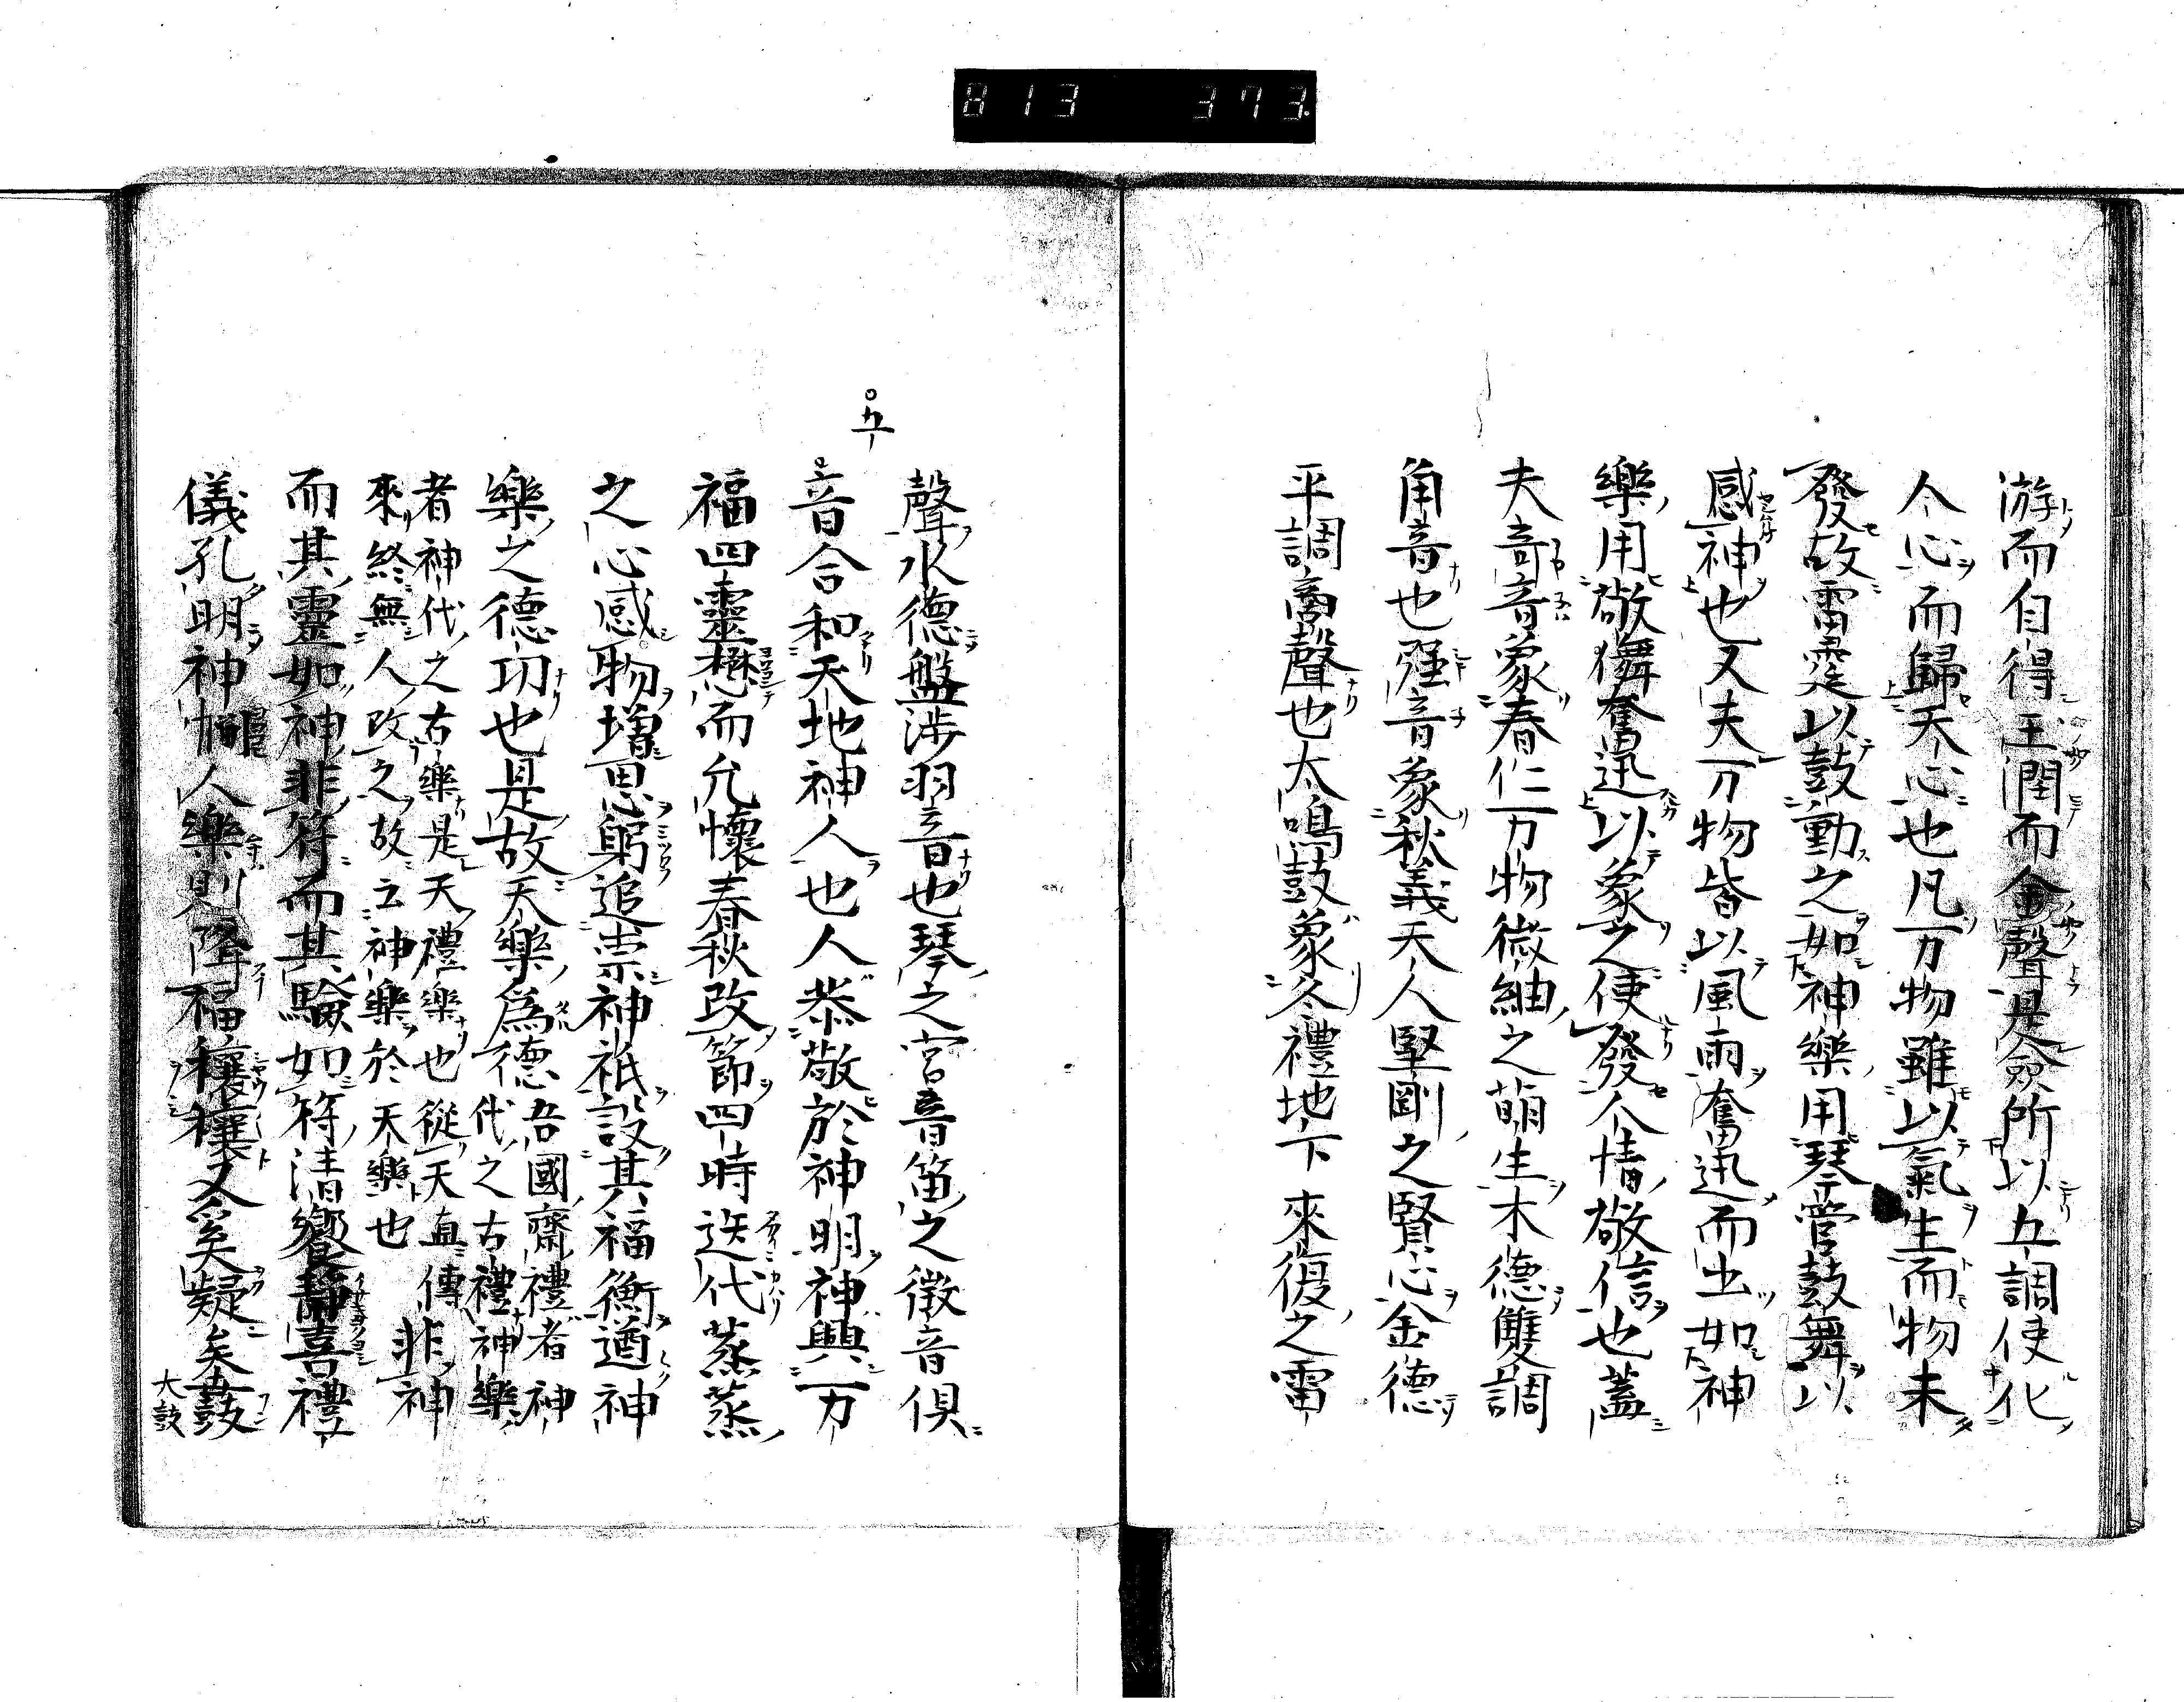 813 373
游而自得玉潤而金聲是僉所以五調使化
人心而歸天心也凡万物雖以氣生而物未
發故雷霆以鼓動之如神樂用琴管鼓舞以
感神也又夫万物皆以風雨奮迅而出如神
樂用敬舞奮迅以象之使發人情敬信也蓋
夫奇音象春仁万物微細之萌生木德雙調
角音也強音象秋義天人堅剛之賢心金德
平調商聲也太鳴鼓象冬禮地下來復之雷
聲水德盤涉羽音也琴之宮音笛之徵音俱
五
音合和天地神人也人恭敬於神明神興万
福四靈懋而允懷春秋改節四時迭代蒸蒸
之心感物増思躬追崇神祇設其福衡遒神
樂之德功也是故天樂爲德吾國齋禮者神
代之古禮神樂
者神代之古樂是天禮樂也從天直傳
來終無人改之故云神樂於天樂也
非神
而其靈如神非符而其驗如符清饗靜喜禮
儀孔明神人樂則降福穰穰又奚疑矣鼓
大鼓